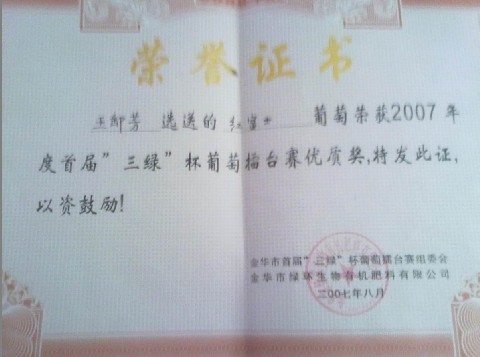 荣誉证书
选送的 红 葡萄荣获2007年
度首届"三绿"杯葡萄擂台赛优质奖,特发此证,
以资鼓励!
金华市首届"三绿"杯葡萄擂台赛组委会
金华市绿环生物有机肥料有限公司
二00七年八月